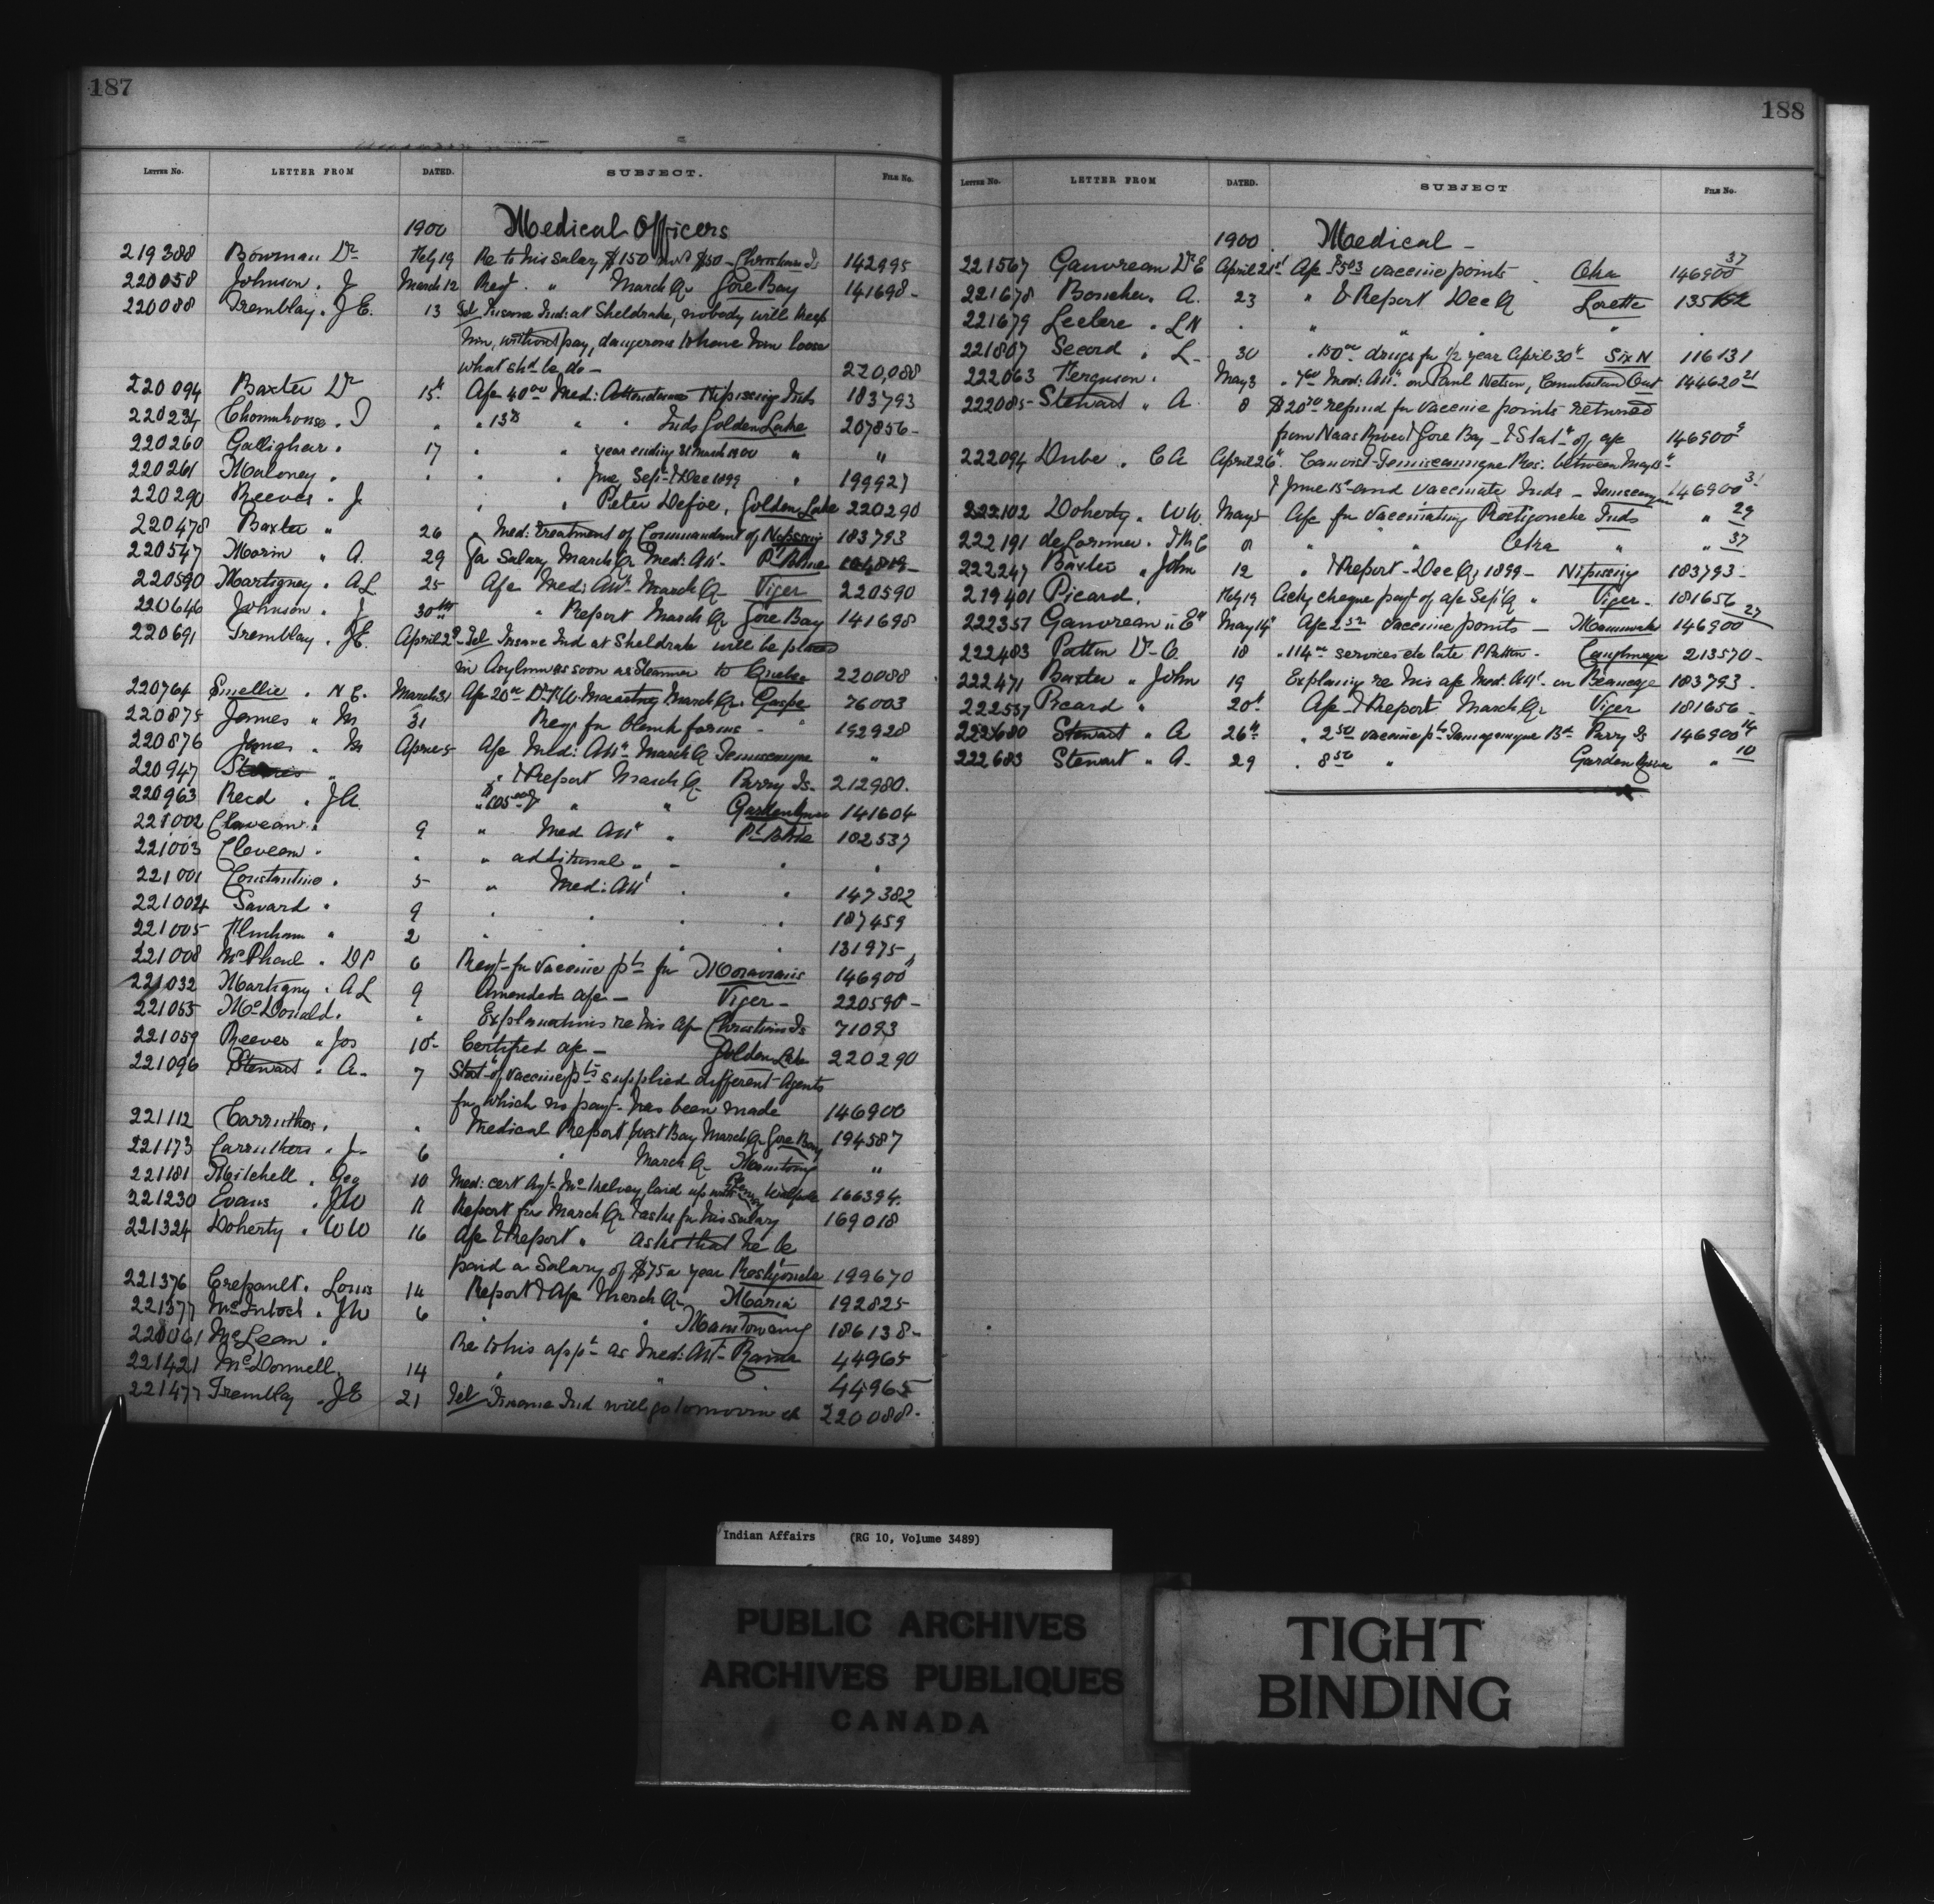 187
LETTER NO. LETTER FROM DATED. SUBJECT. FILE NO.
1900 Medical Officers
219388 Bowman Dr Feb 19 Re to his salary $150 $50 - Christian Is 142995
220058 Johnson . J March 12 Reqt. " March Qr Gore Bay 141698-
220088 Tremblay . J E. 13 Tel Insane Ind: at Sheldrake, nobody will keep
him, without pay, dangerous to have him loose
what shd he do - 220,088
220094 Baxter Dr 15th A/c 40.00 Med: Attendance Nipissing Inds 183793
220234 . J " " 13 " " Inds Golden Lake 207856-
220260 Gallighan . 17 " " year ending 31 March 1900 " "
220261 Maloney . " " " June, Sept & Dec 1899 " 199927
220290 Reeves . J " " Peter Defoe, Golden Lake 220290
220478 Baxter " 26 " Med: treatment of Commandant of Nipissing 183793
220547 Morin " A. 29 Salary March Qr Med: Att. Pt Bleue
220590 Martigny . A L 25 A/c Med: Att. March Qr Viger 220590
220646 Johnson . J 30th " Report March Qr Gore Bay 141698
220691 Tremblay . J E. April 2d Tel Insane Ind at Sheldrake will be placed
in Asylum as soon as Steamer to Quebec 220088
220764 Smellie . N E. March 31 A/c 20.00 Dr Macartney March Qr. Gaspe 76003
220875 James " M 31 Req for blank forms - " 192928
220876 James . M April 5 A/c Med: Att. March Q Temiscamgue "
220947 " " & Report March Q Parry Is. 212980.
220963 Reed . J A. " $105.00 " " Garden River 141604
221002 Claveau . 9 " Med Att " Pt Bleue 182537
221003 Claveau . " " additional " " " "
221001 Constantine . 5 " Med: Att . " 147382
221004 Savard . 9 " " " " 187459
221005 " 2 " " " 131975
221008 McPhail . D P 6 Reqt for vaccine pts for Moravians 146900
221032 Martigny . A L 9 Amended a/c - Viger - 220590-
221055 McDonald. " Explanations re his a/c Christian Is 71093
221059 Reeves " Jos 10th Certified a/c - Golden Lake 220290
221096 Stewart . A. 7 Stat. of vaccine pts supplied different Agents
for which no payt. has been made 146900
221112 Carruthers. " Medical Report West Bay March Qr Gore Bay 194587
221173 Carruthers . J. 6 " March Q Manitowg "
221181 Mitchell . Geo 10 Med: cert Agt. McKelvey laid up with Walpole 166394.
221230 Evans . J W 11 Report for March Qr & asks for his salary 169018
221324 Doherty . W W 16 A/c & Report . Asks that he be
paid a Salary of $75 a year Restigouche 199670
221376 Crepault. Louis 14 Report & A/c March Q Maria 192825
221377 McIntosh . J W 6 " Manitowaning 186138-
McLean . Re to his appt as Med: Att- Rama 44965
221421 McDonnell. 14 " " 44965
221477 Tremblay . J E 21 Tel Insane Ind will go tomorrow 220088.
188
LETTER NO. LETTER FROM DATED. SUBJECT FILE NO.
1900. Medical -
221567 Gauvreau Dr E April 21st A/c $5.03 vaccine points . Oka 146900 37
221678 Boucher . A. 23 " & Report Dec Q Lorette
221679 Leclerc . L N . " " " " .
221807 Secord . L. 30 " 150.00 drugs for 1/2 year April 30th Six N 116131
222063 Ferguson . May 3 " 7.00 Med: Att. on Paul Nelson, Ont 144620 21
222085 Stewart " A 8 $20.70 refund for vaccine points returned
from Naas River & Gore Bay - & Stat. of a/c 146900 9
222094 Dube . C A April 26th Temiscamigue Res: between May 15th
& June 15th and vaccinate Inds - 146900 31
222102 Doherty . W W. May 5 A/c for vaccinating Restigouche Inds " 29
222191 deLorimier. J M C 8 " " Oka " " 37
222247 Baxter " John 12 " & Report - Dec Q, 1899 - Nipissing 183793-
219401 Picard. Feb 19 Ackg cheque payt of a/c Sept Q " Viger. 181656
222357 Gauvreau " E May 14th A/c 2 vaccine points - 146900 27
222483 Patton Dr G. 18 " 114.00 services etc late P Patton - Caughnaga 213570-
222471 Baxter " John 19 Explaing re his a/c Med: Att. on 183793.
222557 Picard " 20th A/c & Report March Qr Viger 181656-
222680 Stewart . A 26th " 2.50 vaccine pts Bd Parry Is 146900 14
222683 Stewart " A. 29 . 8.50 " Garden River " 10
Indian Affairs (RG 10, Volume 3489)
PUBLIC ARCHIVES
ARCHIVES PUBLIQUES
CANADA
TIGHT
BINDING